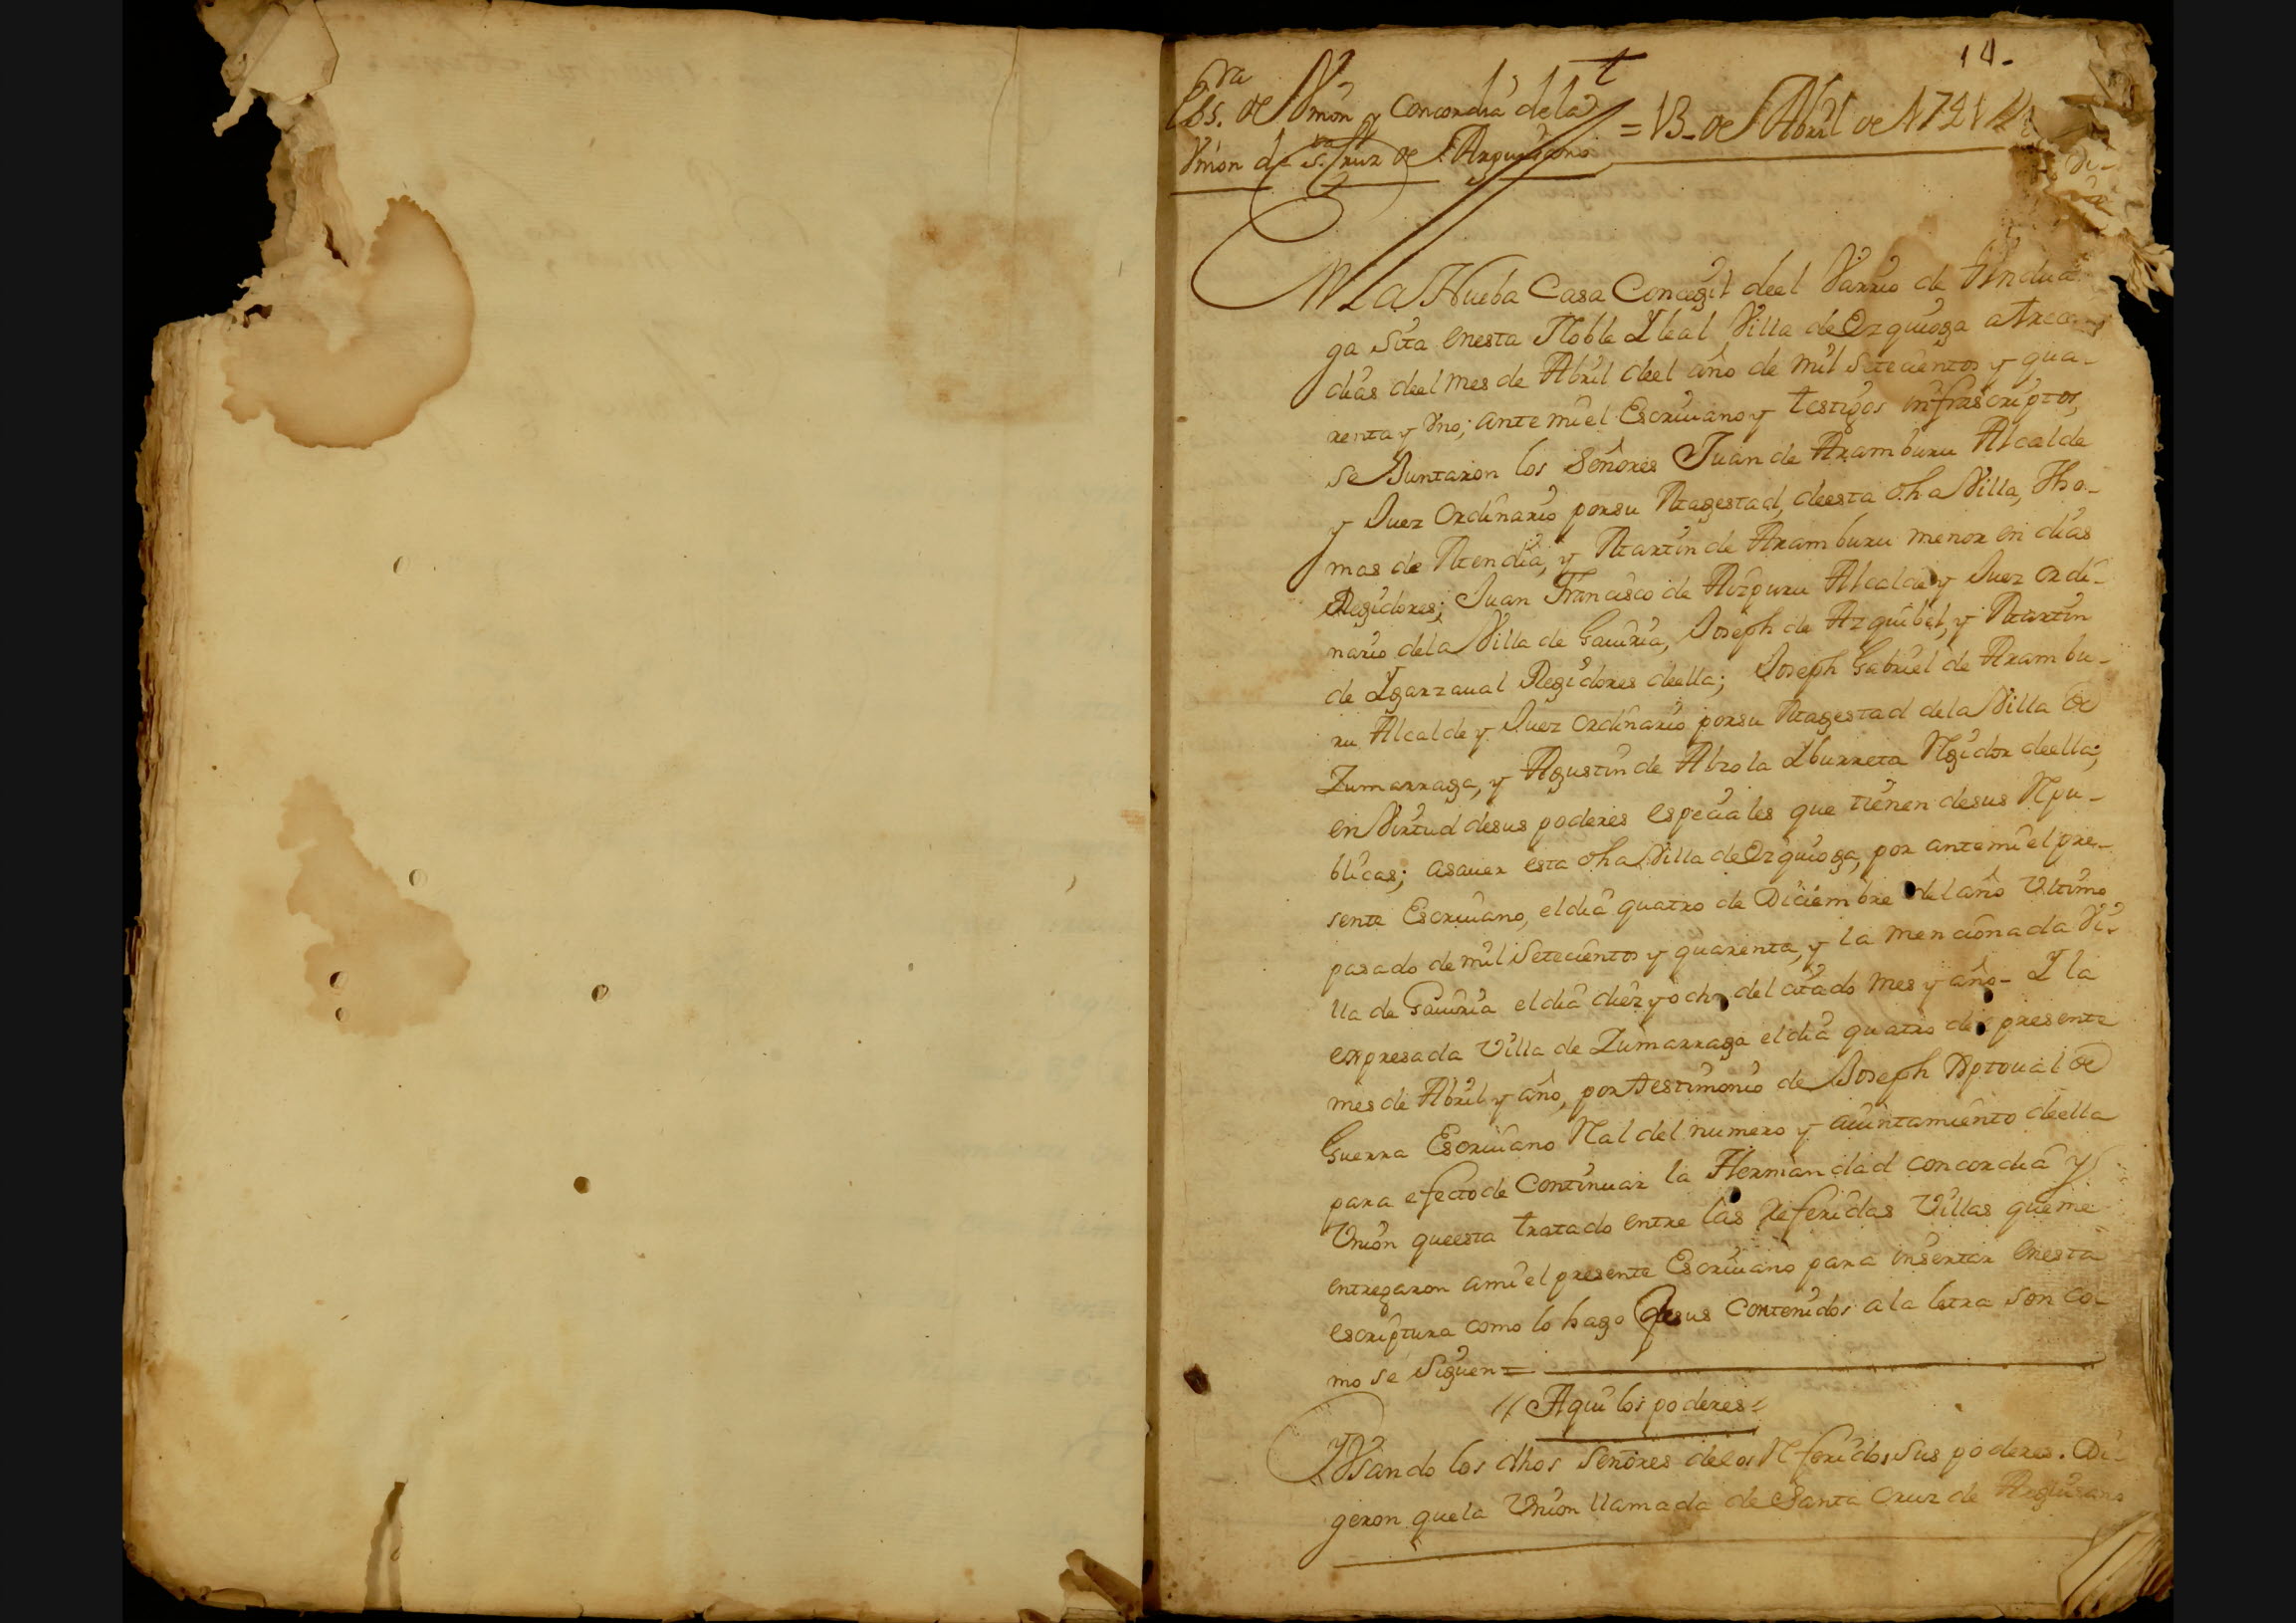 14.
Ess.ra de Vnion y Concordia de la
Vnion de S.ta Cruz de Arguisano = 13 de Abril de 1741
En La Nueba Casa Concegil deel Varrio de Andua
ga sita enesta Noble Y leal Villa de Ezquioga a trece
dias deel mes de Abril deel año de mil Setecientos y qua-
renta y Vno; ante mi el Escriuano y testigos infrascriptos,
se Juntaron los Señores Juan de Aramburu Alcalde
y Juez ordinario por su Magestad, deesta dha Villa, Tho-
mas de Mendia, y Martin de Aramburu menor en dias
Regidores; Juan Francisco de Aizpuru Alcalde y Juez ordi-
nario dela Villa de Gauiria, Joseph de Azquibel, y Martin
de Ygarzaual Regidores deella; Joseph Gabriel de Arambu-
ru Alcalde y Juez ordinario por su Magestad dela Villa de
Zumarraga, y Agustin de Alzola Yburreta Rgidor deella;
en Virtud desus poderes especiales que tienen desus Rpu-
blicas; asauer esta dha Villa de Ezquioga, por ante mi el pre-
sente Escriuano, el dia quatro de Diciembre del año Vltimo
pasado de mil Setecientos y quarenta, y la mencionada Vi-
lla de Gauiria el dia diez y ocho del citado mes y año- Y la
expresada Villa de Zumarraga el dia quatro del presente
mes de Abril y año, por testimonio de Joseph Xptoual de
Guerra Escriuano Ral del numero y aiuntamiento deella
para efecto de Continuar la Hermandad concordia y
Vnion queesta tratado entre las Referidas Villas que me
entregaron ami el presente Escriuano para insertar enesta
escriptura como lo hago Qesus Contenidos a la letra son co-
mo se Siguen =
// Aqui los poderes //
Y Vsando los dhos Señores delos Rferidos Sus poderes. Di-
geron que la Vnion llamada de Santa Cruz de Arguisano